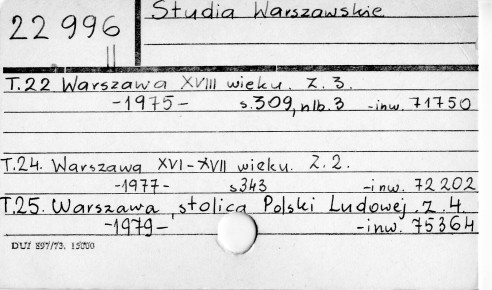 22 996
II
Studia Warszawskie
T.22 Warszawa XVIII wieku. Z. 3.
-1975- s.309, nlb.3 -inw. 71750
T.24. Warszawa XVI-XVII wieku. Z. 2.
-1977- s343 -inw. 72202
T.25. Warszawa, stolica Polski Ludowej. Z. 4.
-1979- -inw. 75364
DUJ 897/73. 15000